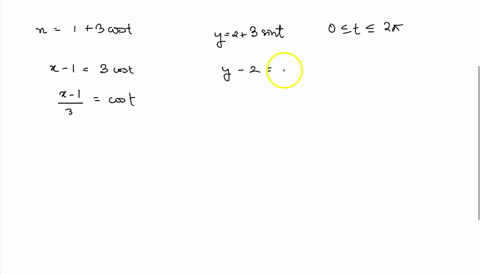 x = 1 + 3 cost y = 2 + 3 sint 0 ≤ t ≤ 2π
x - 1 = 3 cost y - 2 =
x-1/3 = cost